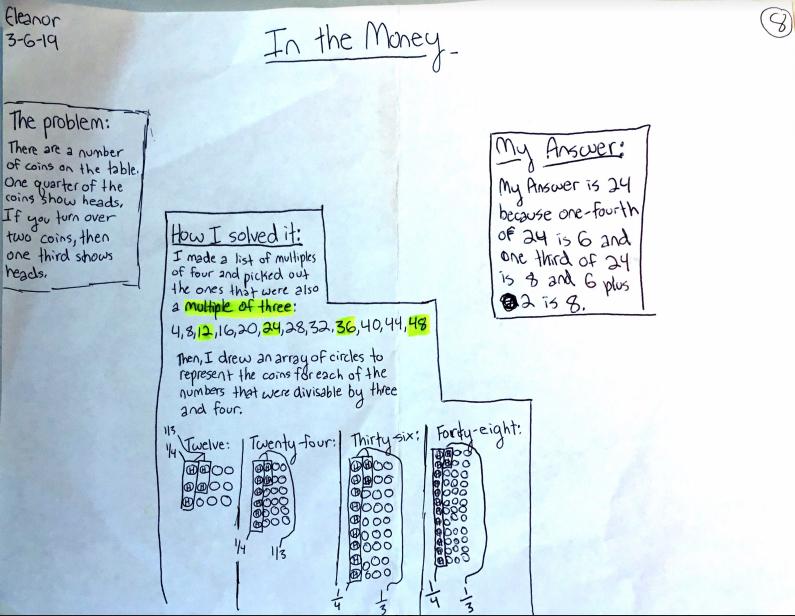 Eleanor
3-6-19
8
In the Money
The problem:
There are a number
of coins on the table.
One quarter of the
coins show heads.
If you turn over
two coins, then
one third shows
heads.
My Answer:
My Answer is 24
because one-fourth
of 24 is 6 and
one third of 24
is 8 and 6 plus
2 is 8.
How I solved it:
I made a list of multiples
of four and picked out
the ones that were also
a multiple of three:
4,8,12,16,20,24,28,32,36,40,44,48
Then, I drew an array of circles to
represent the coins for each of the
numbers that were divisable by three
and four.
1/3
1/4
Twelve:
Twenty-four:
Thirty-six:
Forty-eight:
1/4
1/3
1/4
1/3
1/4
1/3